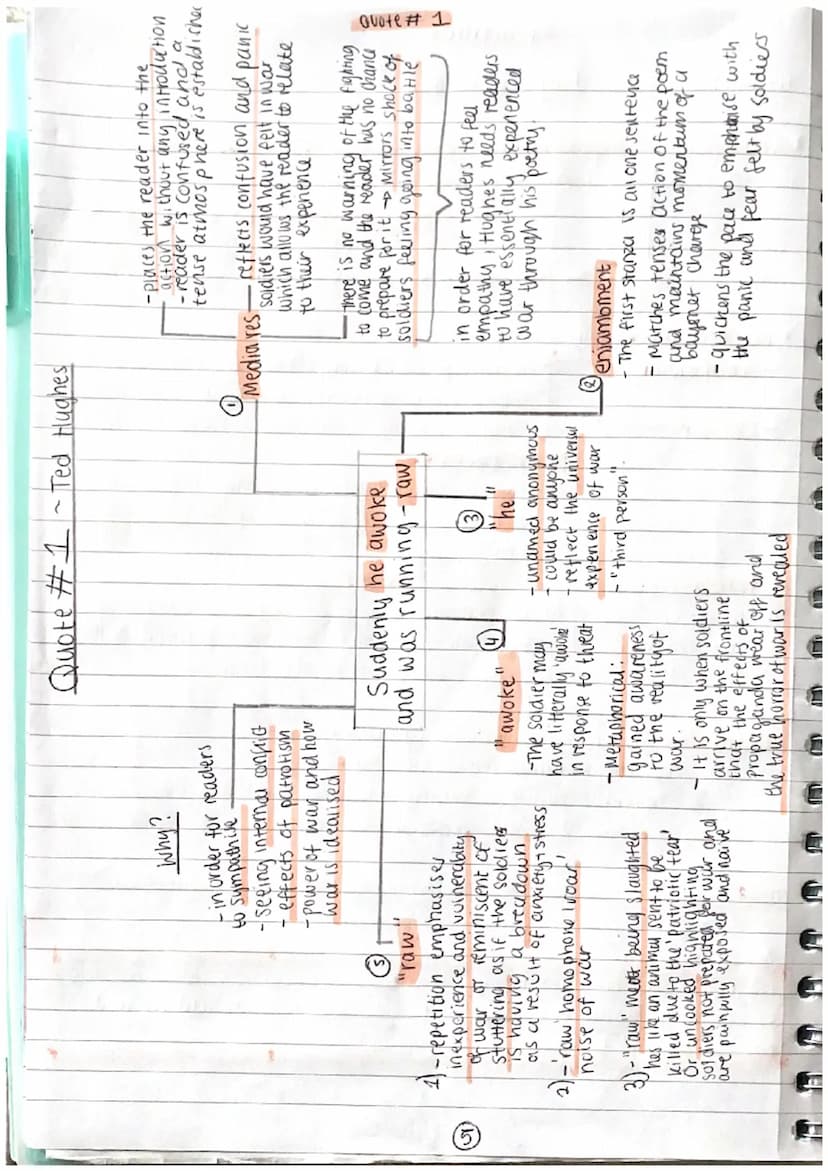 Quote # 1 ~ Ted Hughes
Quote # 1
Suddenly he awoke
and was running - raw
① Media res
- places the reader into the
action without any introduction
- reader is confused and a
tense atmosphere is established
- reflects confusion and panic
soldiers would have felt in war
which allows the reader to relate
to their experience
there is no warning of the fighting
to come and the reader has no chance
to prepare for it → mirrors shock of
soldiers feeling going into battle
in order for readers to feel
empathy, Hughes needs readers
to have essentially experienced
war through his poetry.
② enjambment
- The first stanza is all one sentence
- Matches tense action of the poem
and maintains momentum of a
bayonet charge
- quickens the pace to emphasise with
the panic and fear felt by soldiers
③ "he"
- unamed anonymous
- could be anyone
- reflect the universal
experience of war
- "third person".
④ "awoke"
- The soldier may
have litterally 'awoke'
in response to threat
- Metaphorical:
gained awareness
to the reality of
war.
- It is only when soldiers
arrive on the frontline
that the effects of
propaganda wear off and
the true horror of war is revealed
Why?
- in order for readers
to sympathise
- seeing internal conflict
- effects of patrotism
- power of war and how
war is idealised
⑤ "raw"
1) - repetition emphasises
inexperience and vulnerability
of war or reminiscent of
stuttering as if the soldier
is having a breakdown
as a result of anxiety + stress
2) - 'raw' homophone 'roar'
noise of war
3) - "raw" meat being slaughted
has like an animal sent to be
killed due to the 'patriotic tear'
Or uncooked highlighting
soldiers not prepared for war and
are painfully exposed and naive
⑤